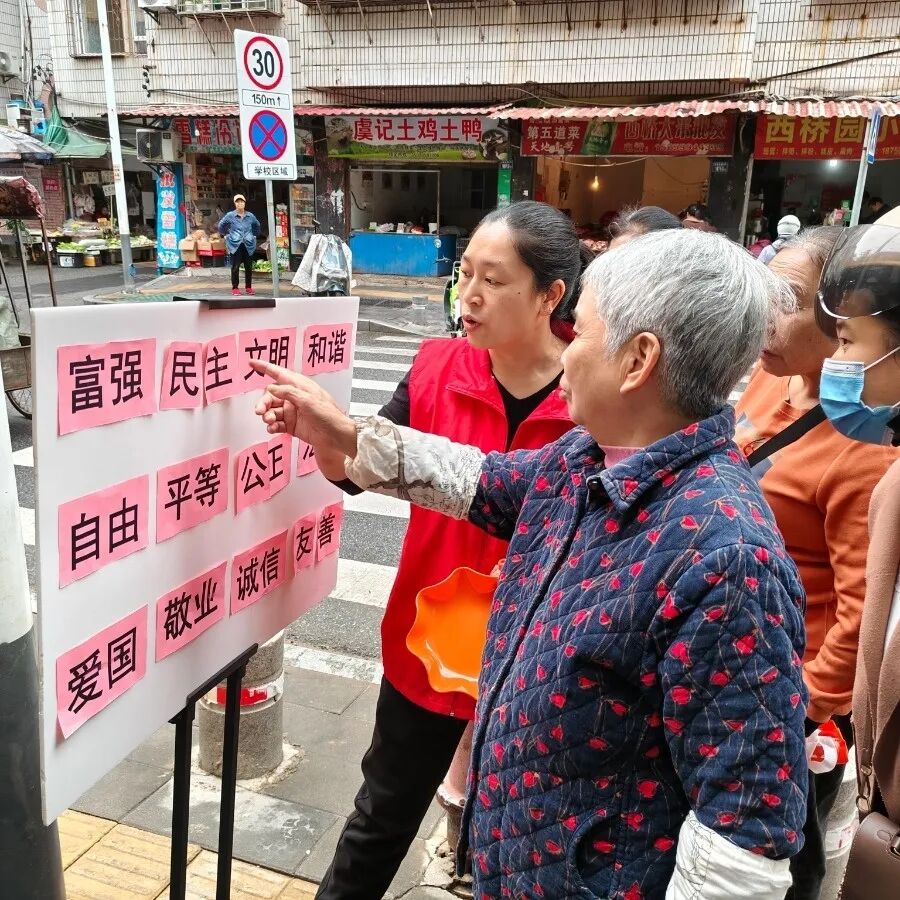 30
150m
学校区域
虞记土鸡土鸭
第五道菜
西桥园
富强 民主 文明 和谐
自由 平等 公正
爱国 敬业 诚信 友善